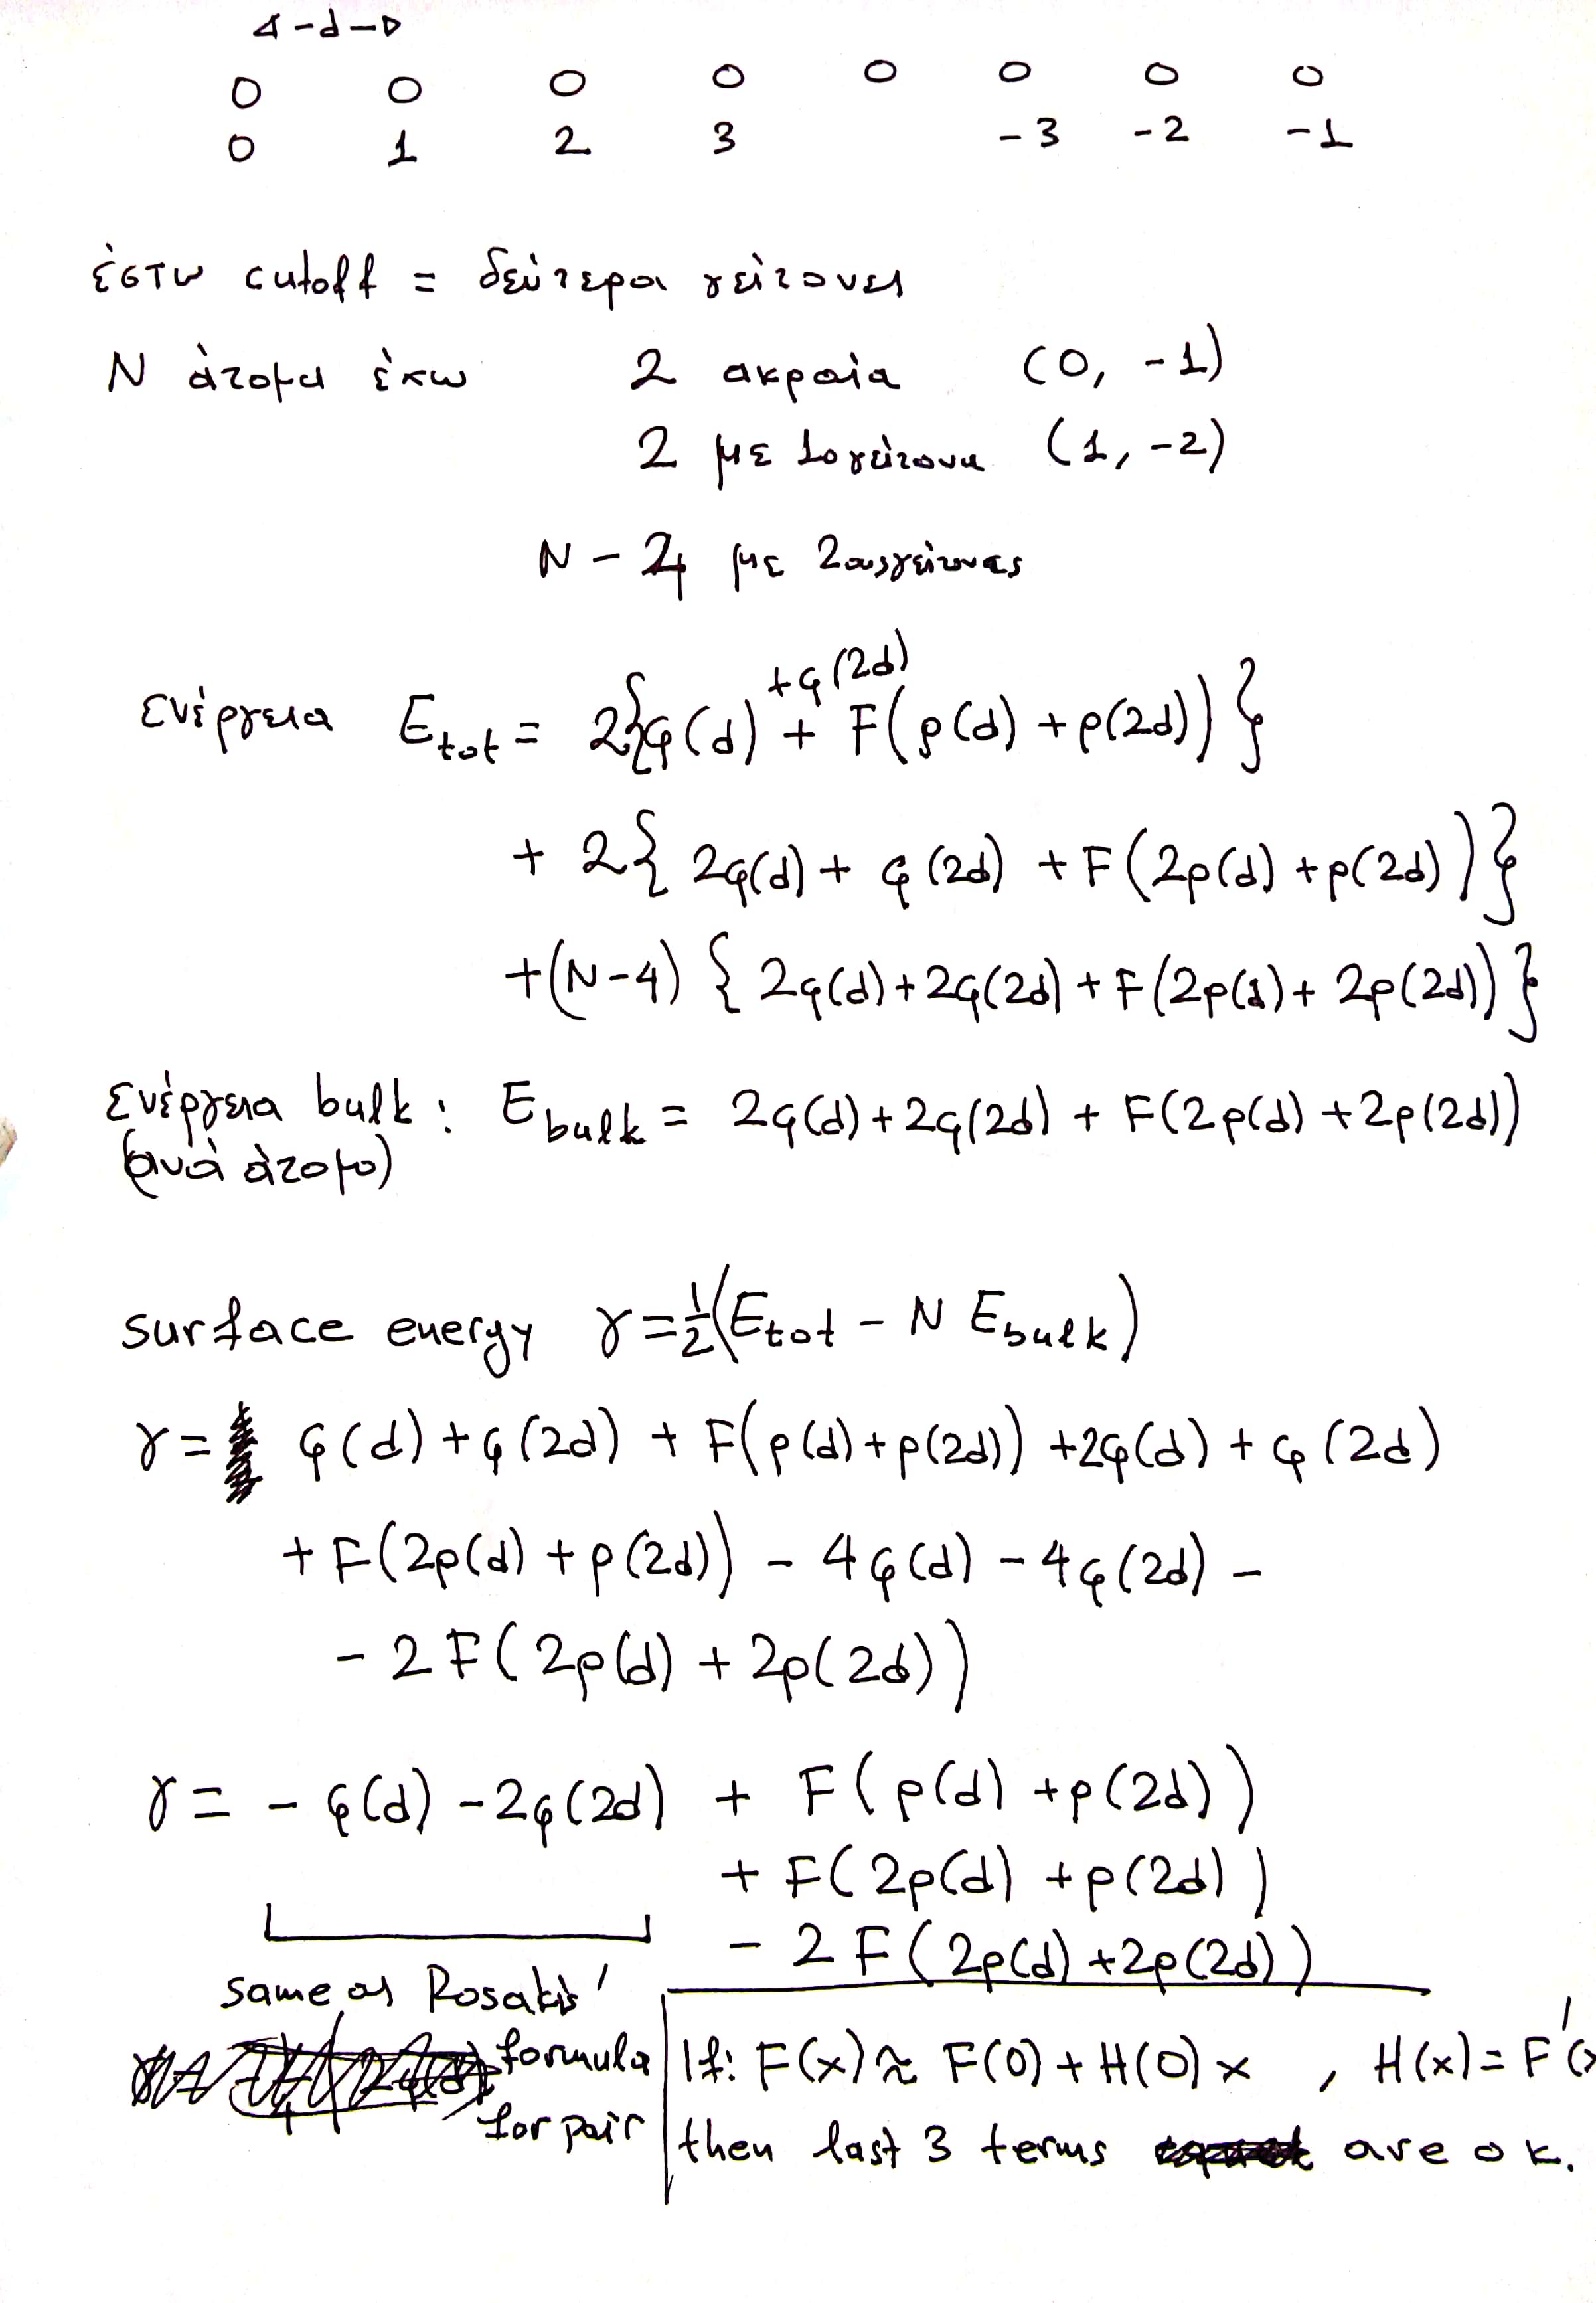 ◁-d-▷
0 1 2 3 -3 -2 -1
έστω cutoff = δεύτεροι γείτονες
N άτομα έχω 2 ακραία (0, -1)
2 με 1ο γείτονα (1, -2)
N - 4 με 2ους γείτονες
+φ(2d)
ενέργεια E_tot = 2{φ(d) + F(ρ(d) + ρ(2d))}
+ 2{2φ(d) + φ(2d) + F(2ρ(d) + ρ(2d))}
+(N-4) {2φ(d) + 2φ(2d) + F(2ρ(d) + 2ρ(2d))}
ενέργεια bulk : E_bulk = 2φ(d) + 2φ(2d) + F(2ρ(d) + 2ρ(2d))
(ανά άτομο)
surface energy γ = ½(E_tot - N E_bulk)
γ = φ(d) + φ(2d) + F(ρ(d) + ρ(2d)) + 2φ(d) + φ(2d)
+ F(2ρ(d) + ρ(2d)) - 4φ(d) - 4φ(2d) -
- 2F(2ρ(d) + 2ρ(2d))
γ = - φ(d) - 2φ(2d) + F(ρ(d) + ρ(2d))
+ F(2ρ(d) + ρ(2d))
- 2F(2ρ(d) + 2ρ(2d))
same as Rosakis'
formula
for pair
If: F(x) ≈ F(0) + H(0) x , H(x) = F'(x
then last 3 terms are ok.